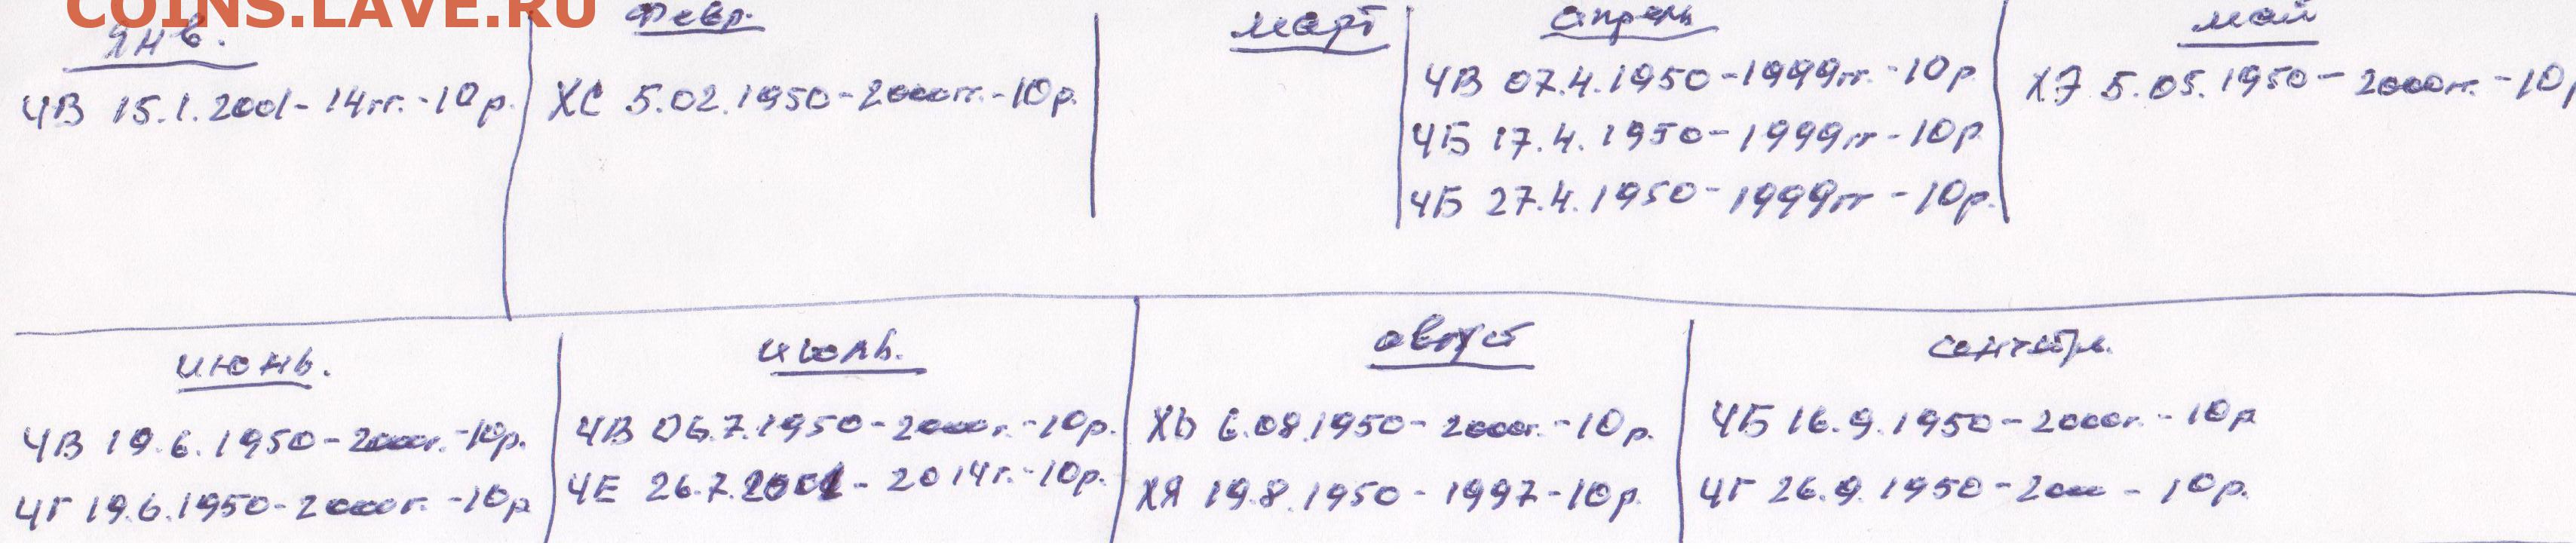 COINS.LAVE.RU
Янв.
ЧВ 15.1.2001-14гг.-10р.
Февр.
ХС 5.02.1950-2000гг.-10р.
март
апрель
ЧВ 07.4.1950-1999гг.-10р.
ЧБ 17.4.1950-1999гг-10р.
ЧБ 27.4.1950-1999гг-10р.
май
ХЭ 5.05.1950-2000гг.-10р
июнь.
ЧВ 19.6.1950-2000г.-10р.
ЧГ 19.6.1950-2000г.-10р
июль.
ЧВ 06.7.1950-2000г.-10р.
ЧЕ 26.7.2001-2014г.-10р.
август
ХЬ 6.08.1950-2000г.-10р.
ХЯ 19.8.1950-1997-10р.
сентябрь.
ЧБ 16.9.1950-2000г.-10р
ЧГ 26.9.1950-2000-10р.